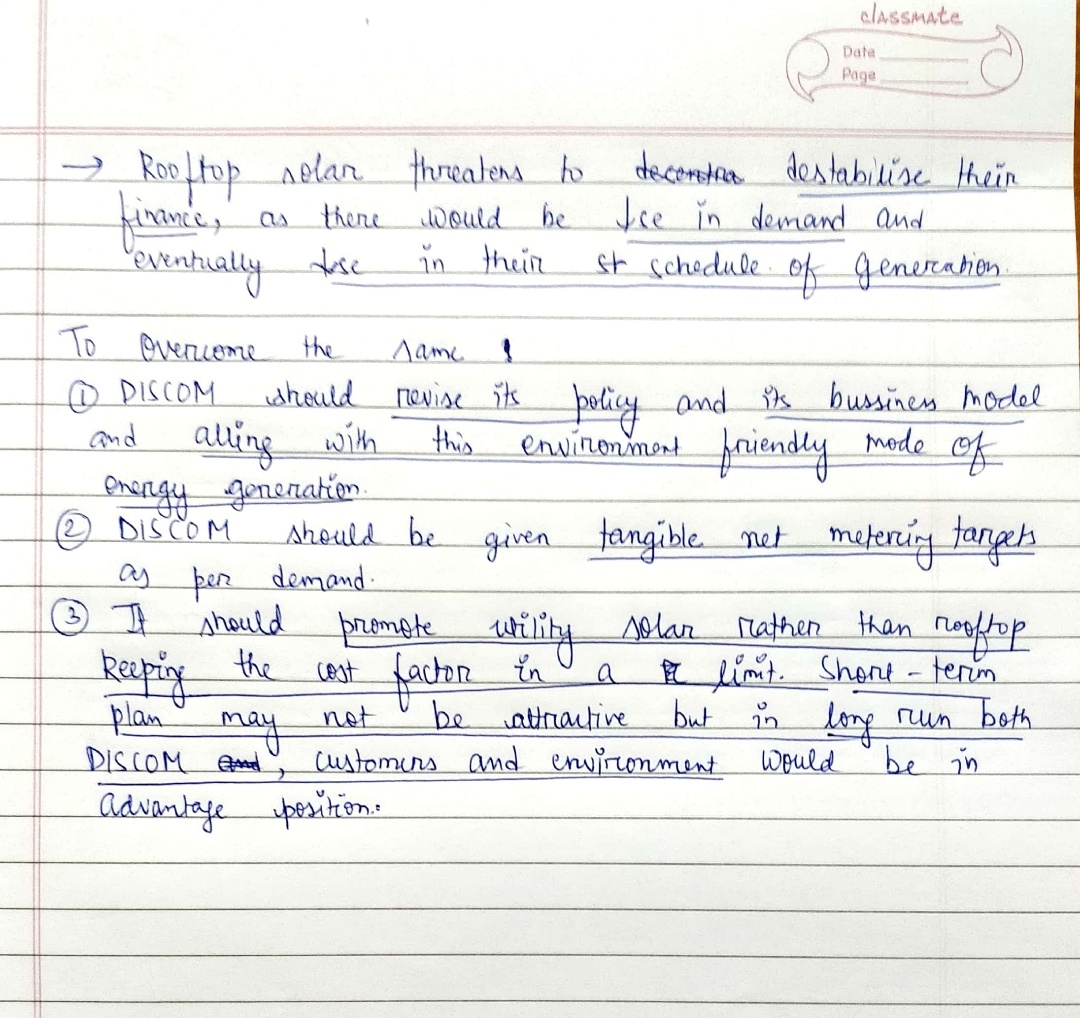 classmate
Date
Page
→ Rooftop solar threatens to destabilise their
finance, as there would be ↓se in demand and
eventually ↓se in their schedule of generation.
To overcome the same :
① DISCOM should revise its policy and its bussiness model
and alling with this environment friendly mode of
energy generation.
② DISCOM should be given tangible net metering targets
as per demand.
③ It should promote utility solar rather than rooftop
keeping the cost factor in a limit. Short-term
plan may not be attractive but in long run both
DISCOM, customers and environment would be in
advantage position.